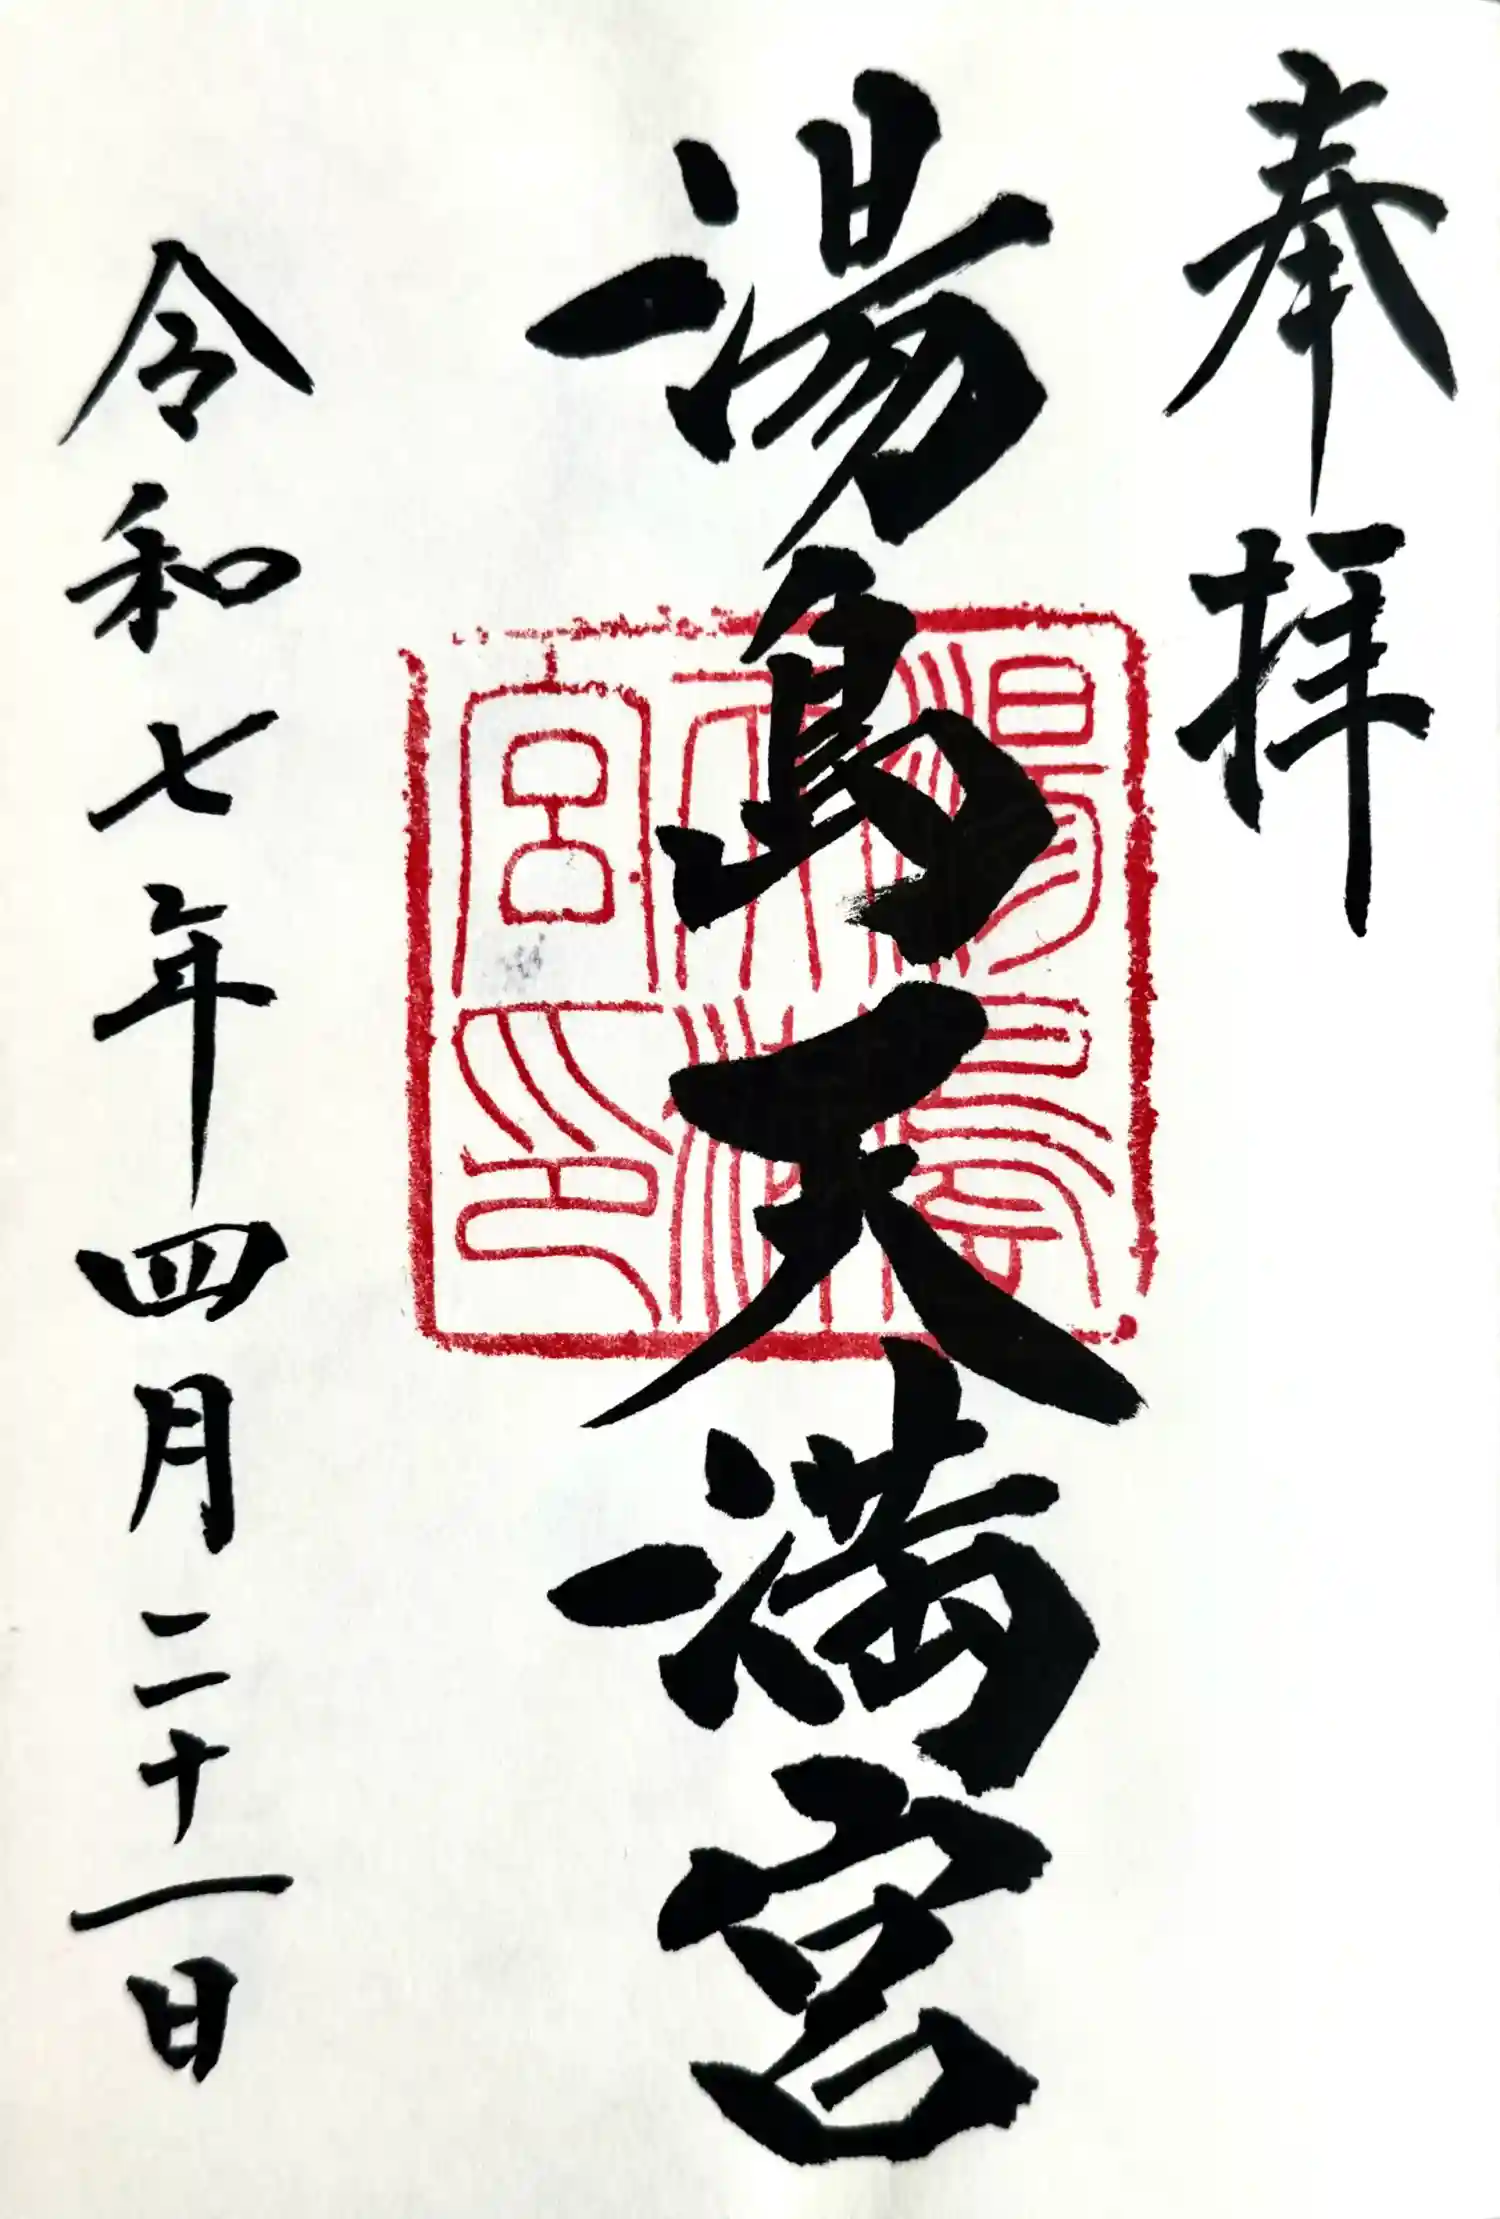 奉拝
湯島天満宮
湯島天満宮印
令和七年四月二十一日